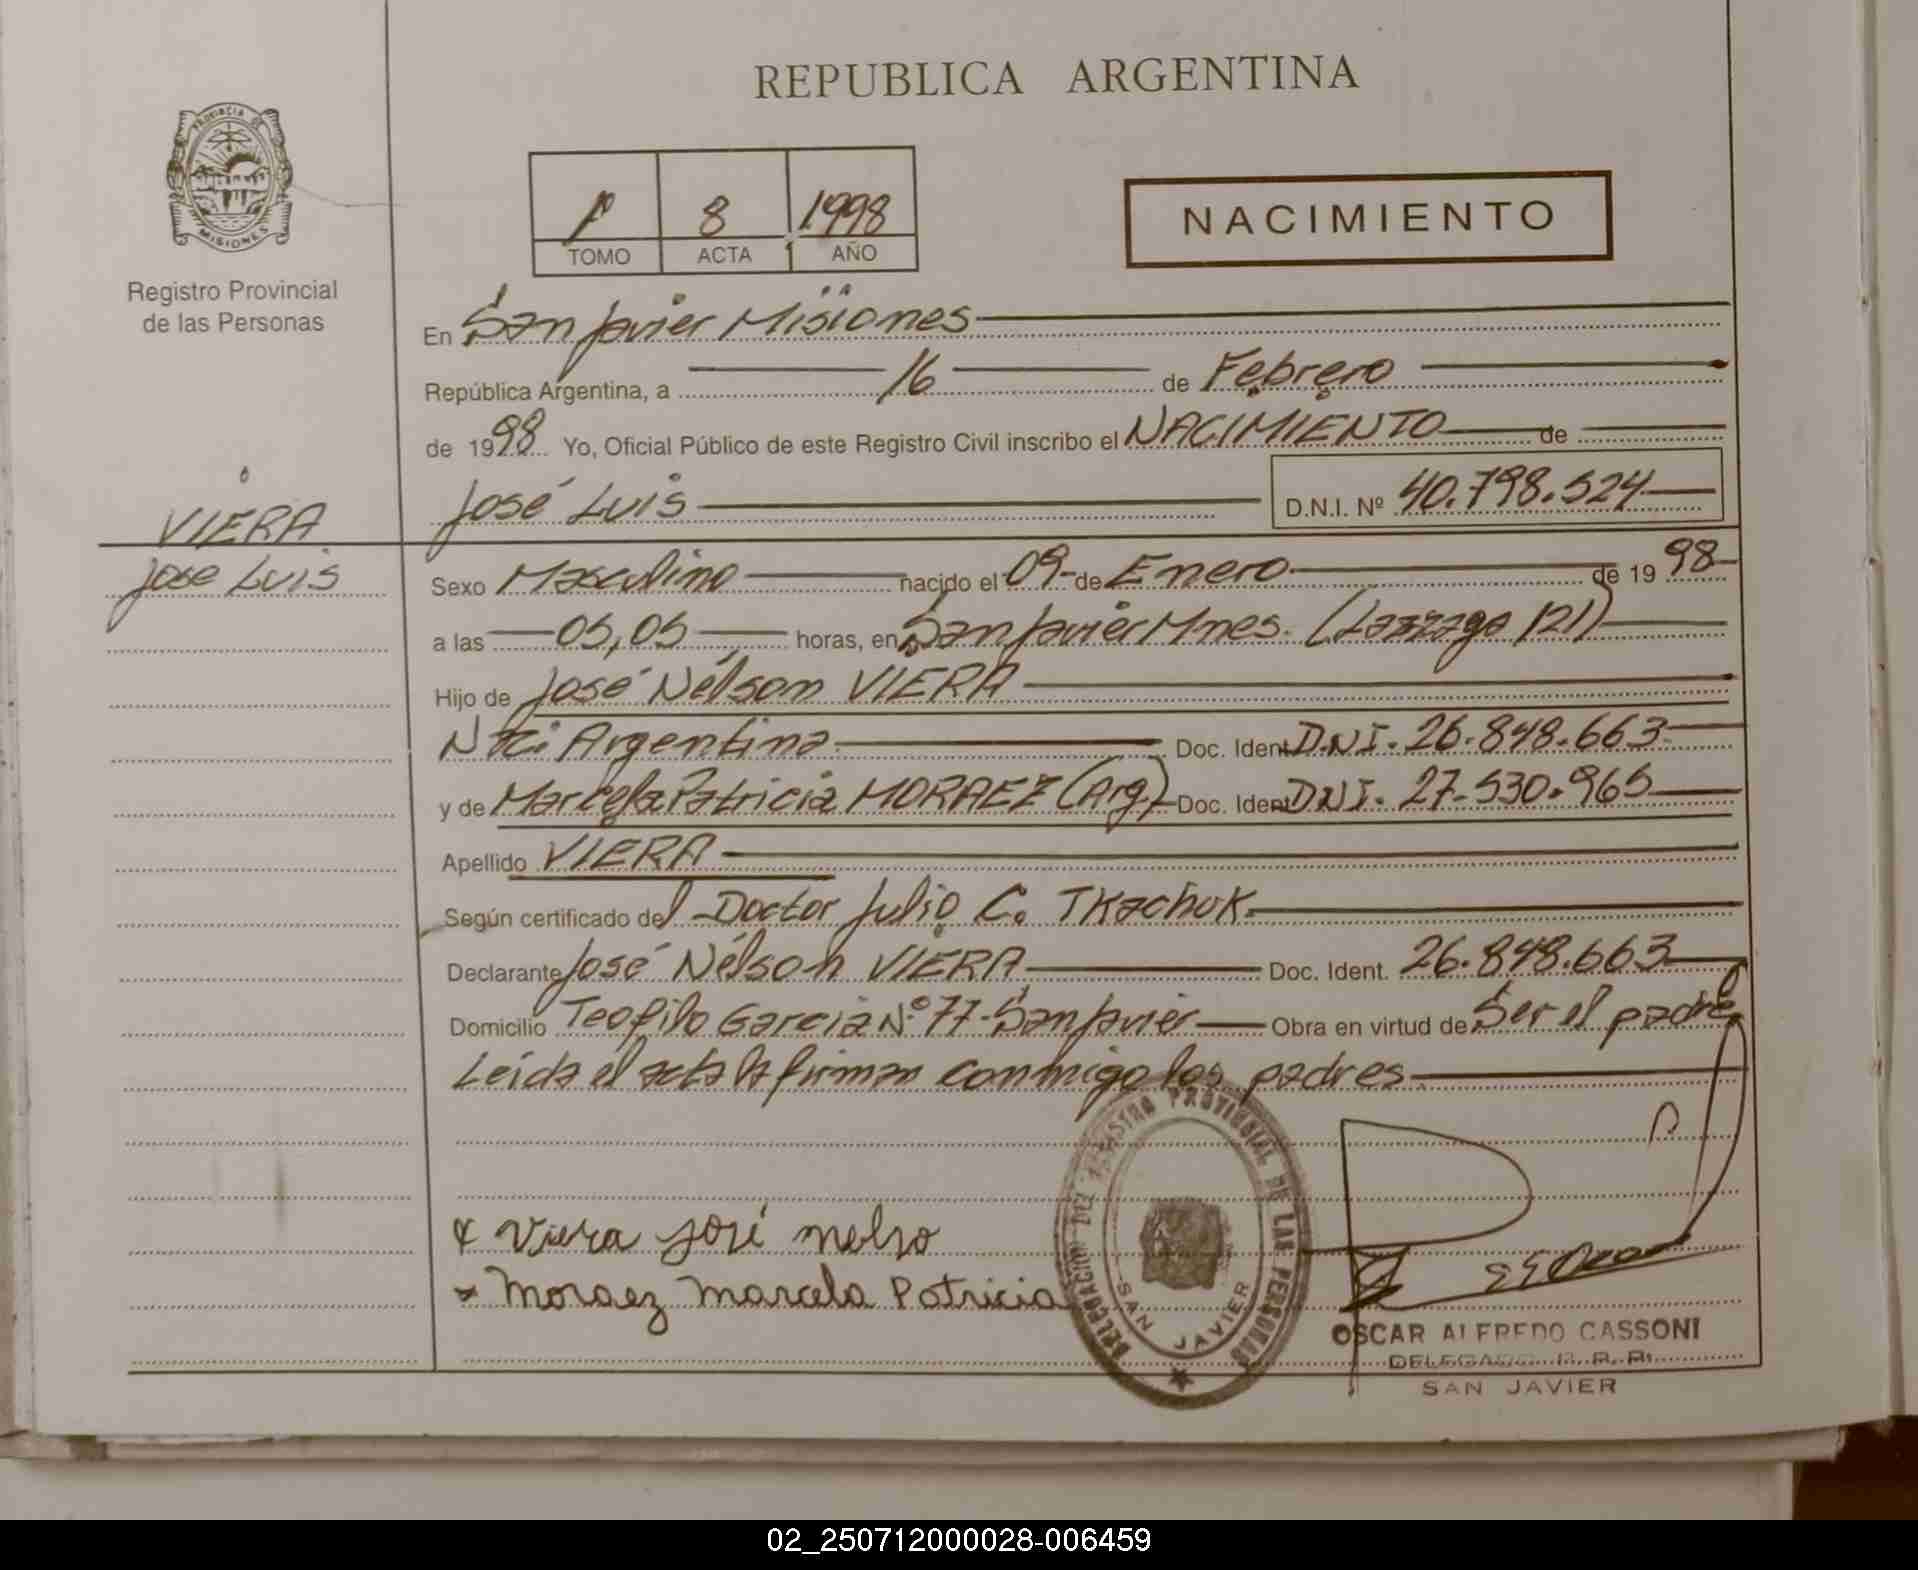 REPUBLICA ARGENTINA
PROVINCIA DE MISIONES
Registro Provincial
de las Personas
1º 8 1998
TOMO ACTA AÑO
NACIMIENTO
En San Javier Misiones
República Argentina, a 16 de Febrero
de 1998 Yo, Oficial Público de este Registro Civil inscribo el NACIMIENTO de
José Luis D.N.I. Nº 40.798.524
VIERA
José Luis
Sexo Masculino nacido el 09 de Enero de 1998
a las 05,05 horas, en San Javier Mnes. (Lazzaga 121)
Hijo de José Nélson VIERA
Nac. Argentina Doc. Ident. D.N.I. 26.848.663
y de Marcela Patricia MORAEZ (Arg.) Doc. Ident. DNI. 27.530.965
Apellido VIERA
Según certificado del Doctor Julio C. Tkachuk
Declarante José Nélson VIERA Doc. Ident. 26.848.663
Domicilio Teofilo Garcia Nº 77-San Javier Obra en virtud de Ser el padre
Leída el acta la firman conmigo los padres
Viera José nelso
Moraez Marcela Patricia
DELEGACION DEL REGISTRO PROVINCIAL DE LAS PERSONAS
SAN JAVIER
OSCAR ALFREDO CASSONI
DELEGADO R. P. P.
SAN JAVIER
02_250712000028-006459